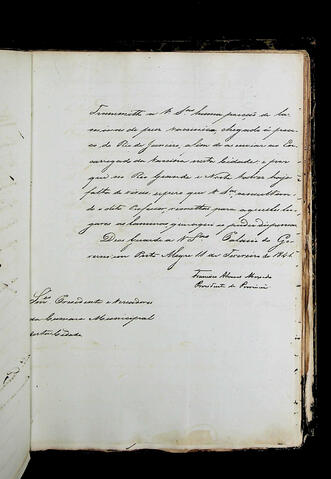 Transmitto a V. Sas huma porção de la-
minas de puz vaccinico, chegado a pouco
do Rio de Janeiro, afim de enviar ao En-
carregado da vaccina nesta Cidade; e por
que no Rio Grande e Norte talvez haja
falta de virus, espero que V. Sas,
e dito Cirurgião, remettão para aquelles lu-
gares as laminas, que se poder dispensar.
Deos Guarde a V. Sas Palacio do Go-
verno em Porto Alegre 11 de Fevereiro de 1846.
Francisco Alvares Machado
Presidente da Provincia
Snrs. Presidente e Vereadores
da Camara Municipal
desta Cidade